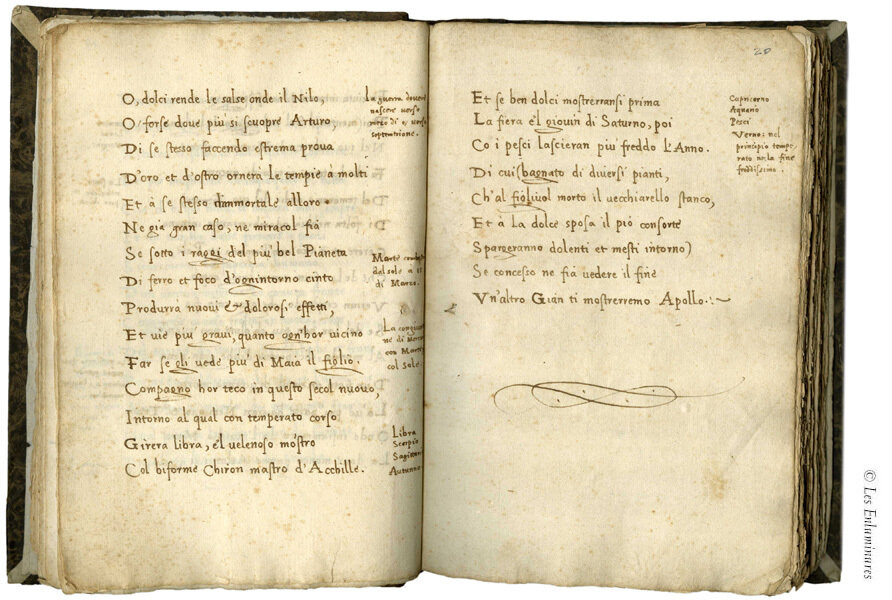 O, dolci rende le salse onde il Nilo,
O' forse doue più si scuopre Arturo,
Di se stesso faccendo estrema proua
D'oro et d'ostro ornerà le tempie à molti
Et à se stesso d'immortale alloro.
Ne già gran caso, ne miracol fià
Se sotto i raggi del più bel Pianeta
Di ferro et foco d'ognintorno cinto
Produrrà nuoui et dolorosi effetti,
Et uie più graui, quanto ogn'hor uicino
Far se gli uede più di Maia il figlio.
Compagno hor teco in questo secol nuouo,
Intorno al qual con temperato corso
Girera libra, e'l uelenoso mostro
Col biforme Chiron mastro d'Acchille.
La guerra douer
nascere uerso
septentrione.
Marte
dal sole a 11
di Marzo.
La congiun
ne di
con Marte
col Sole.
Libra
Scorpio
Sagittario
Autunno
20
Et se ben dolci mostrerransi prima
La fiera e'l giouin di Saturno, poi
Co i pesci lascieran più freddo l'Anno.
Di cui (bagnato di diuersi pianti,
Ch'al figliuol morto il uecchiarello stanco,
Et à la dolce sposa il piò consorte
Spargeranno dolenti et mesti intorno)
Se concesso ne fià uedere il fine
Vn'altro Gian ti mostrerremo Apollo.
Capricorno
Aquario
Pesci
Verno: nel
principio tempe
rato nela fine
freddissimo.
© Les Enluminures